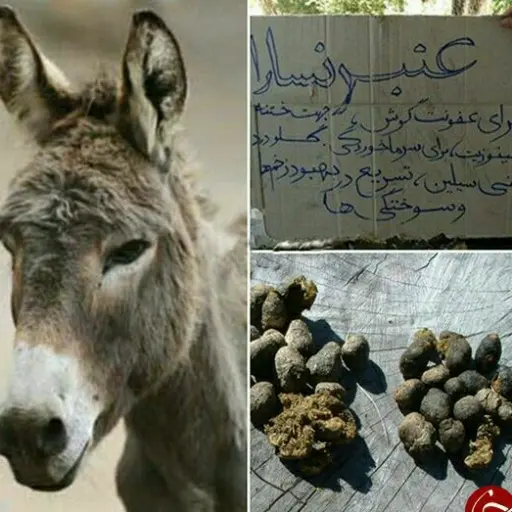 عنبر نسارا
برای عفونت گوش، جهت ختنه
سینوزیت، برای سرماخوردگی گلودرد
پنی سیلین، تسریع در بهبود زخم‌ها
و سوختگی ها